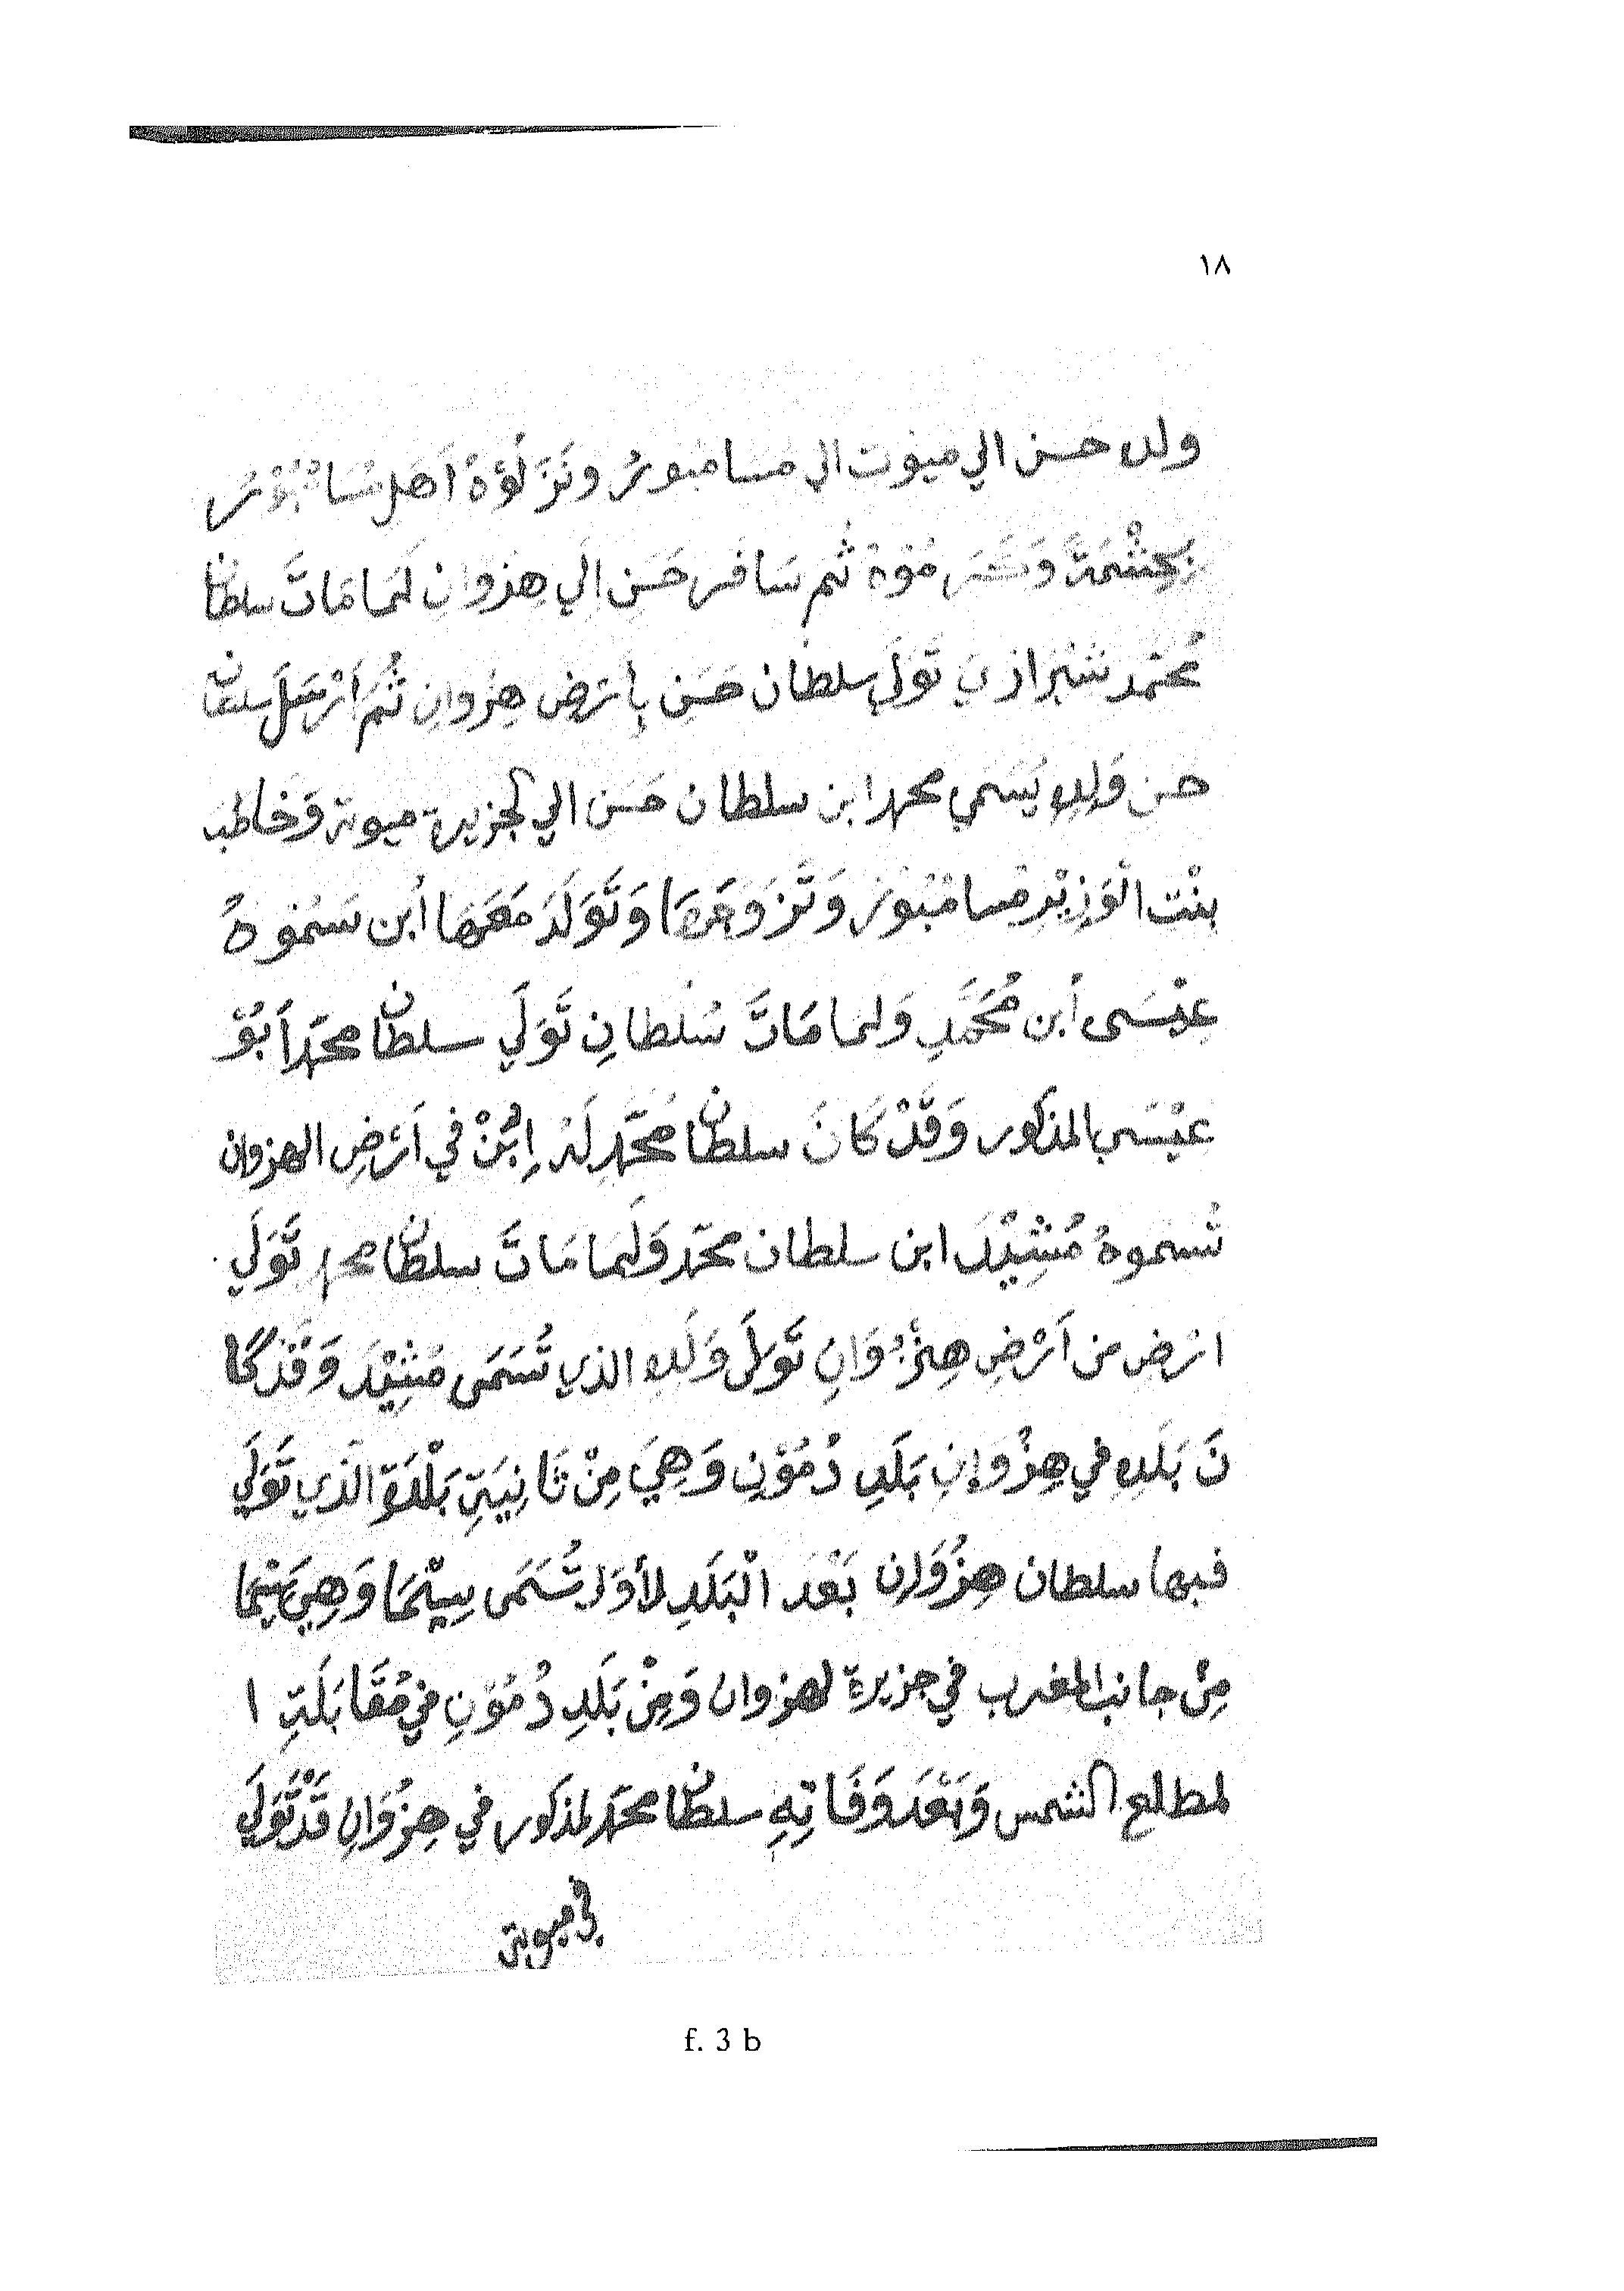 ١٨
ولد حسن الي ميوت الي مسامبور ونَزَّلُوْهُ اَهل مْسَامْبُوْر
بِحِشْمَةً ثُم سَافر حَسَن اِلَي هِنْزوانِ لَمَا مَاتَ سلطان
مُحَمّد شيْرازي تَوَلَي سلطان حَسَن بِاَرَض هِنْزوانِ ثُمَ اَرْسَلَ سلطان
حسن وَلَدِهِ يُسَمي محمد ابن سلطان حَسَن الي لجزيرة ميوتة وَخاطب
بِنْت الْوَزِيْر مْسامْبُوْر وَتَزَوَجَهَا وَتَوَلَدَ مَعَهَا اُبن سَمُوهُ
عِيْسَى اَبن مُحَمَّدِ وَلما مَاتَ سُلطانِ تَوَلَي سلطان محمّد اَبُوْ
عِيْسَى بالمذكور وَقَدْ كَانَ سلطان مُحَمّد لَهُ اِبْنُ في اَرْضِ الهنزوان
تُسَموهُ مْشِيْدَ ابن سلطان محمّد وَلَما مَاتَ سلطان محمد تَوَلَي
ارَض من اَرْضِ هِنْزُوَانِ تَوَلَى وَلَدِهِ الذي تُسَمَى مْشِيْدَ وَقَدْ كَا
نَ بَلَدِهِ في هِنْزُوَانِ بَلَدِ دُمُوْنِ وَهِيَ مِنْ ثَانِيَةِ بَلْدَةِ الَذي تَوَلَي
فيها سلطان هِنْزُوَانِ بَعْدَ الْبَلَدِ لاَوَل تُسَمَى سِيْمَا وَهِيَ سِيْمَا
مِنْ جانب المغرب في جزيرة لهنزوان وَمِنْ بَلَدِ دُمُوْنِ في مُقَابَلَةِ ا
لمطلع الشمس وَبَعْدَ وَفَاتِهِ سلطان محمّد لمذكور في هِنْزُوَانِ قَدْ تَوَلَي
في ميوتة
f. 3 b